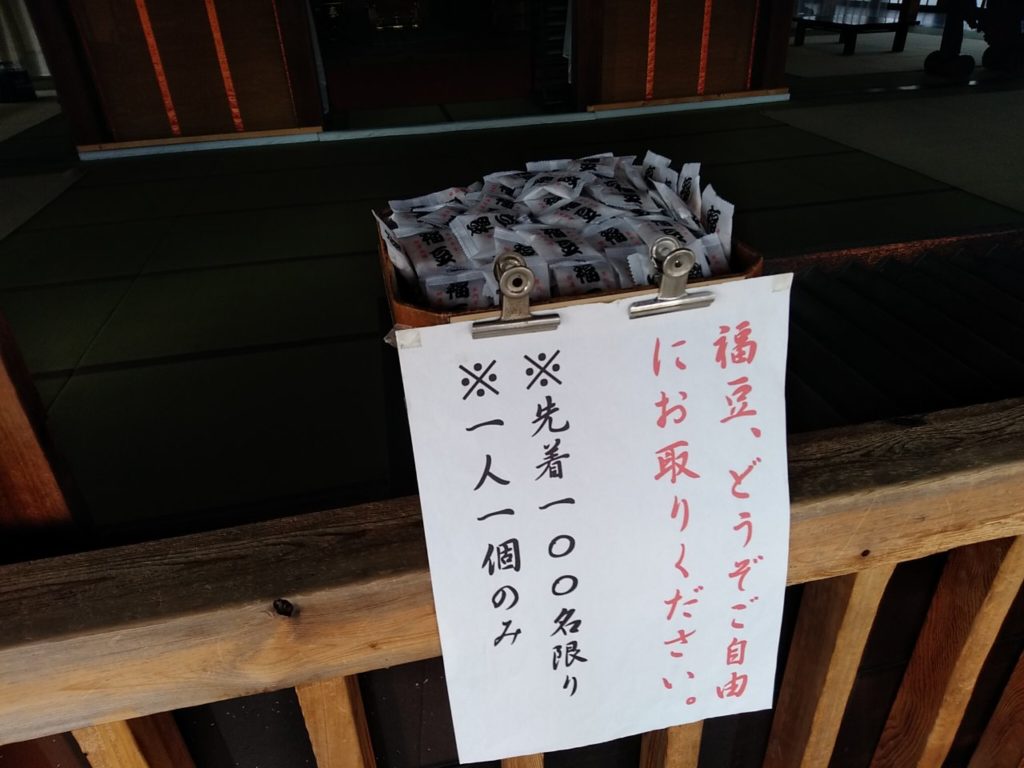 福豆、どうぞご自由
にお取りください。
※先着一〇〇名限り
※一人一個のみ
福豆
福豆
福
福